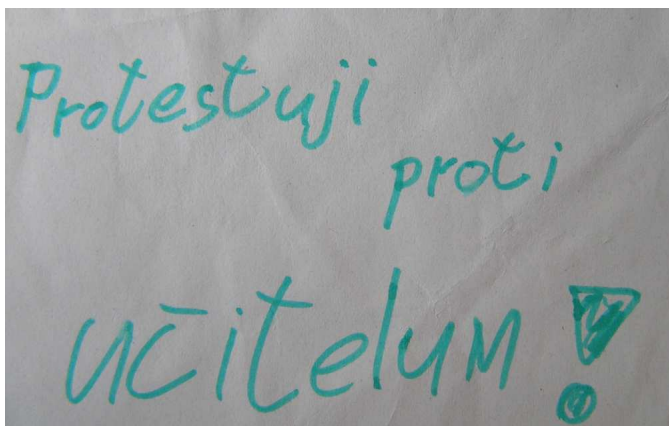 Protestuji
proti
učitelum!